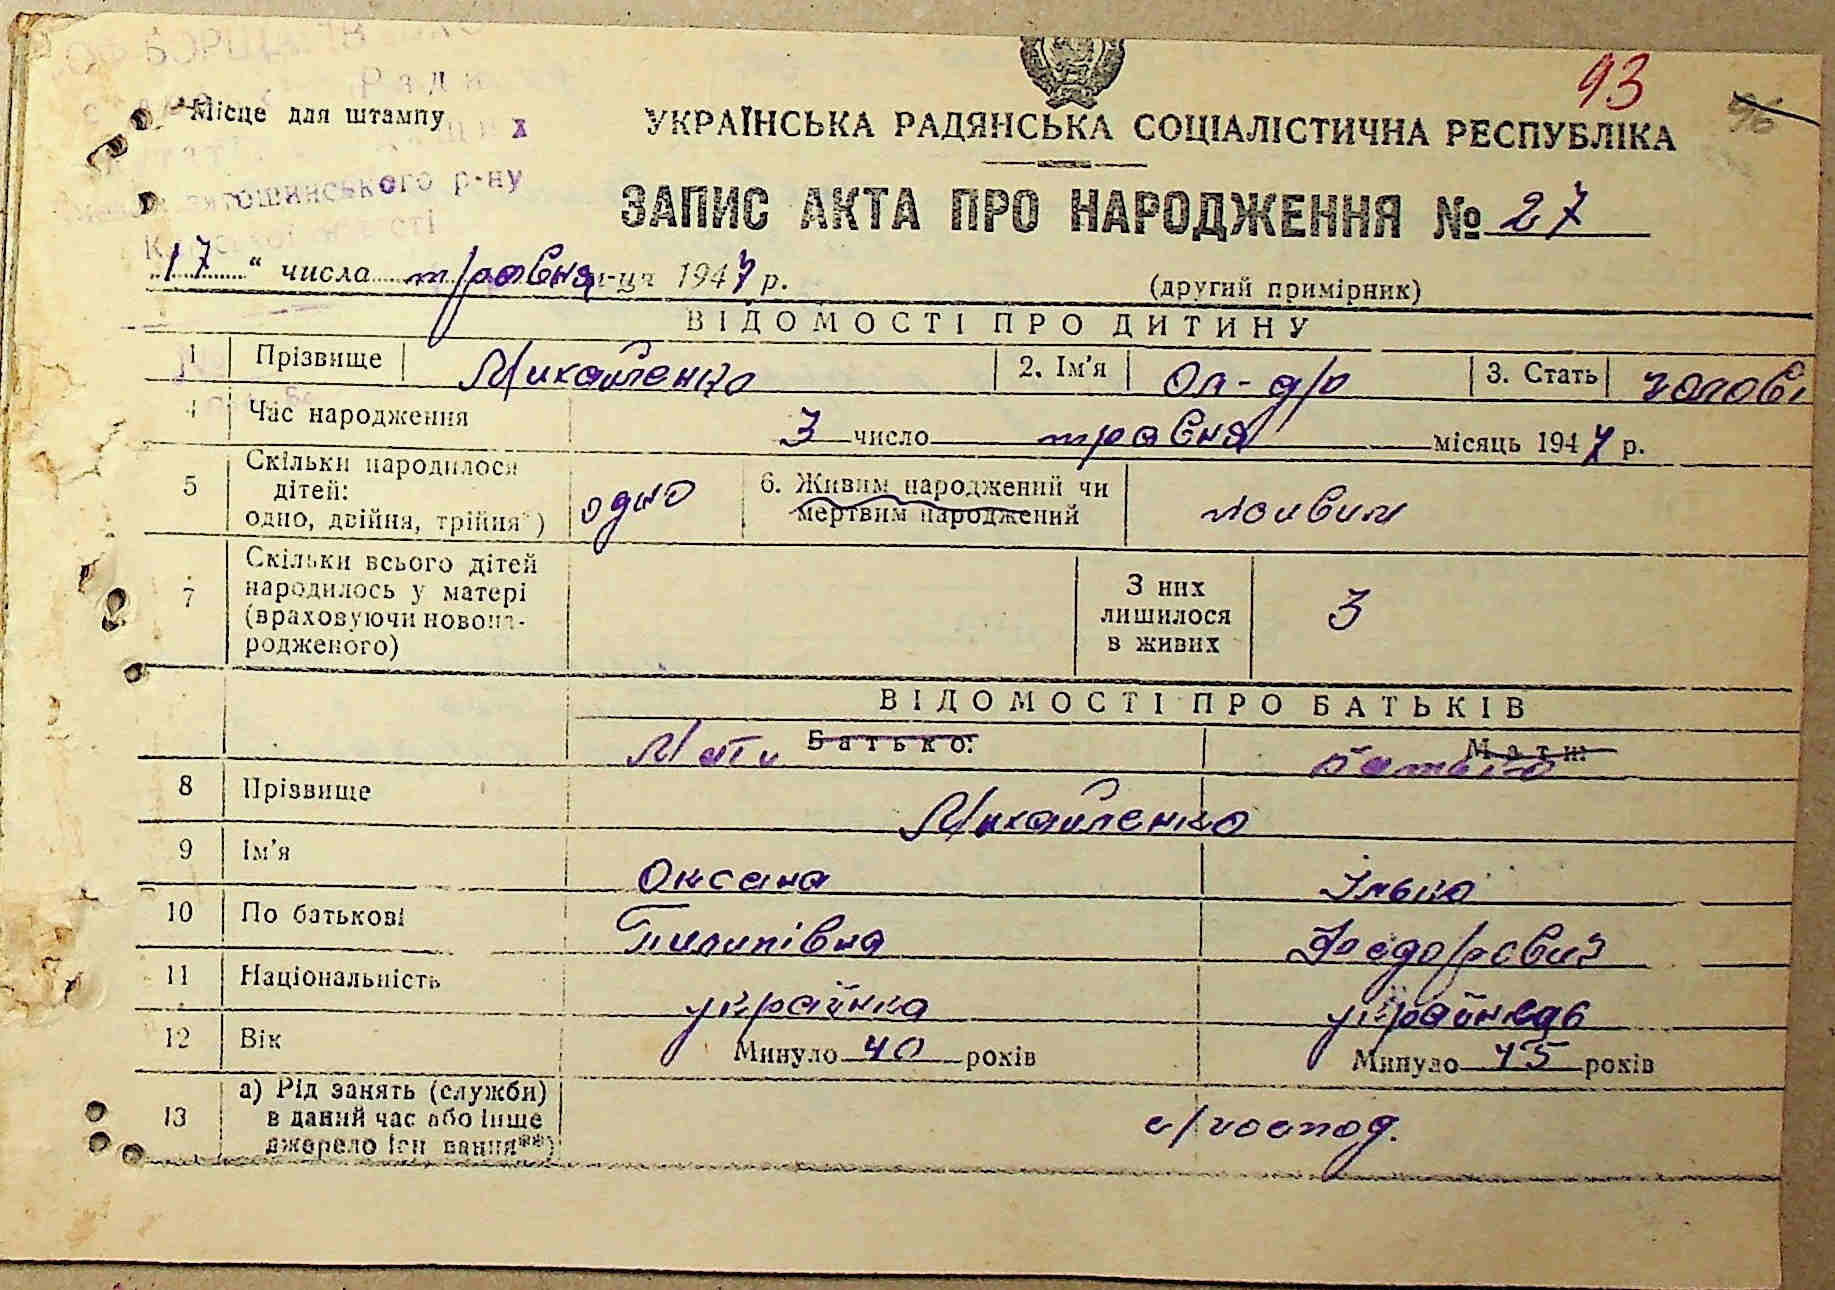 93
Місце для штампу
УКРАЇНСЬКА РАДЯНСЬКА СОЦІАЛІСТИЧНА РЕСПУБЛІКА
р-ну
ЗАПИС АКТА ПРО НАРОДЖЕННЯ № 27
„17" числа травня м-ця 1947 р. (другий примірник)
ВІДОМОСТІ ПРО ДИТИНУ
1 Прізвище Михайленко 2. Ім'я Ол-др 3. Стать чолові
4 Час народження 3 число травня місяць 1947 р.
5 Скільки народилося дітей: одно, двійня, трійня*) одно 6. Живим народжений чи мертвим народжений живим
7 Скільки всього дітей народилось у матері (враховуючи новона-родженого) З них лишилося в живих 3
ВІДОМОСТІ ПРО БАТЬКІВ
Мати Батько: Мати: батько
8 Прізвище Михайленко
9 Ім'я Оксана Ілько
10 По батькові Пилипівна Федорович
11 Національність українка українець
12 Вік Минуло 40 років Минуло 45 років
13 а) Рід занять (служби) в даний час або інше джерело існ вання**) с/господ.